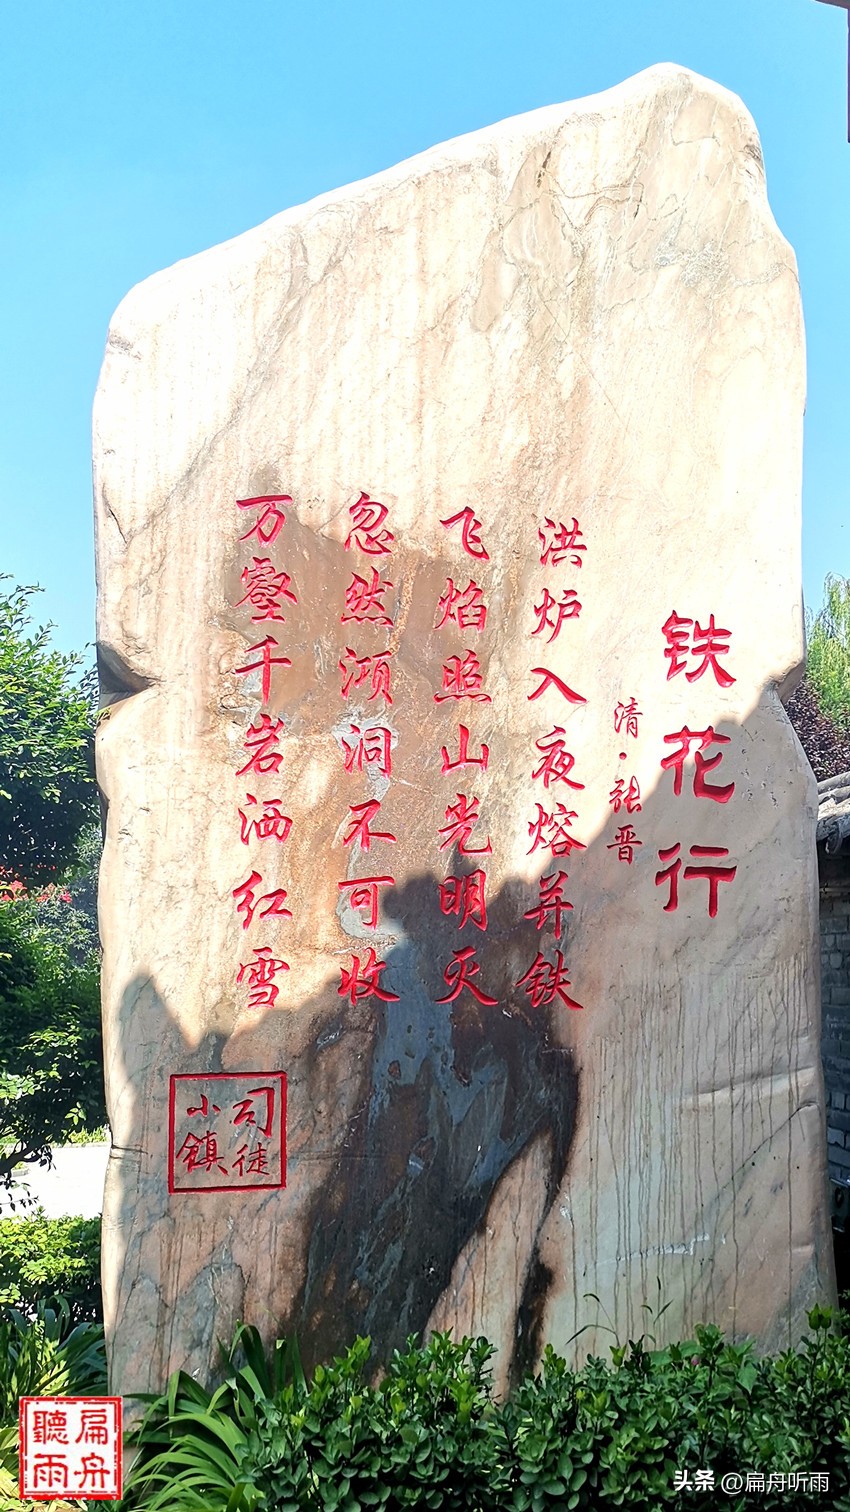 铁花行
清·张晋
洪炉入夜熔并铁
飞焰照山光明灭
忽然澒洞不可收
万壑千岩洒红雪
司徒
小镇
扁舟
聽雨
头条 @扁舟听雨